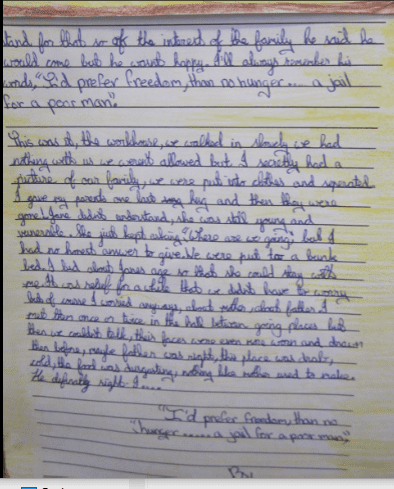 stand for that so off the interest of the family he said he
would come but he wasn't happy. I'll always remember his
words, "I'd prefer freedom, than no hunger .... a jail
for a poor man".
This was it, the workhouse, we walked in slowly we had
nothing with us we weren't allowed but I secretly had a
picture of our family, we were put into clothes and seperated
I gave my parents one last long hug and then they were
gone! Jane didn't understand, she was still young and
venerable. She just kept asking "Where are we going" but I
had no honest answer to give. We were put too a bunk
bed. I lied about Janes age so that she could stay with
me. It was relief for a while that we didn't have to worry
but of course I worried anyways, about mother, about father I
met them once or twice in the hall between going places but
then we couldn't talk, their faces were even more worn and drawn
then before, maybe father was right, this place was dark,
cold, the food was disgusting, nothing like mother used to make.
He definatly right I.....
"I'd prefer freedom, than no
hunger ..... a jail for a poor man,"
By